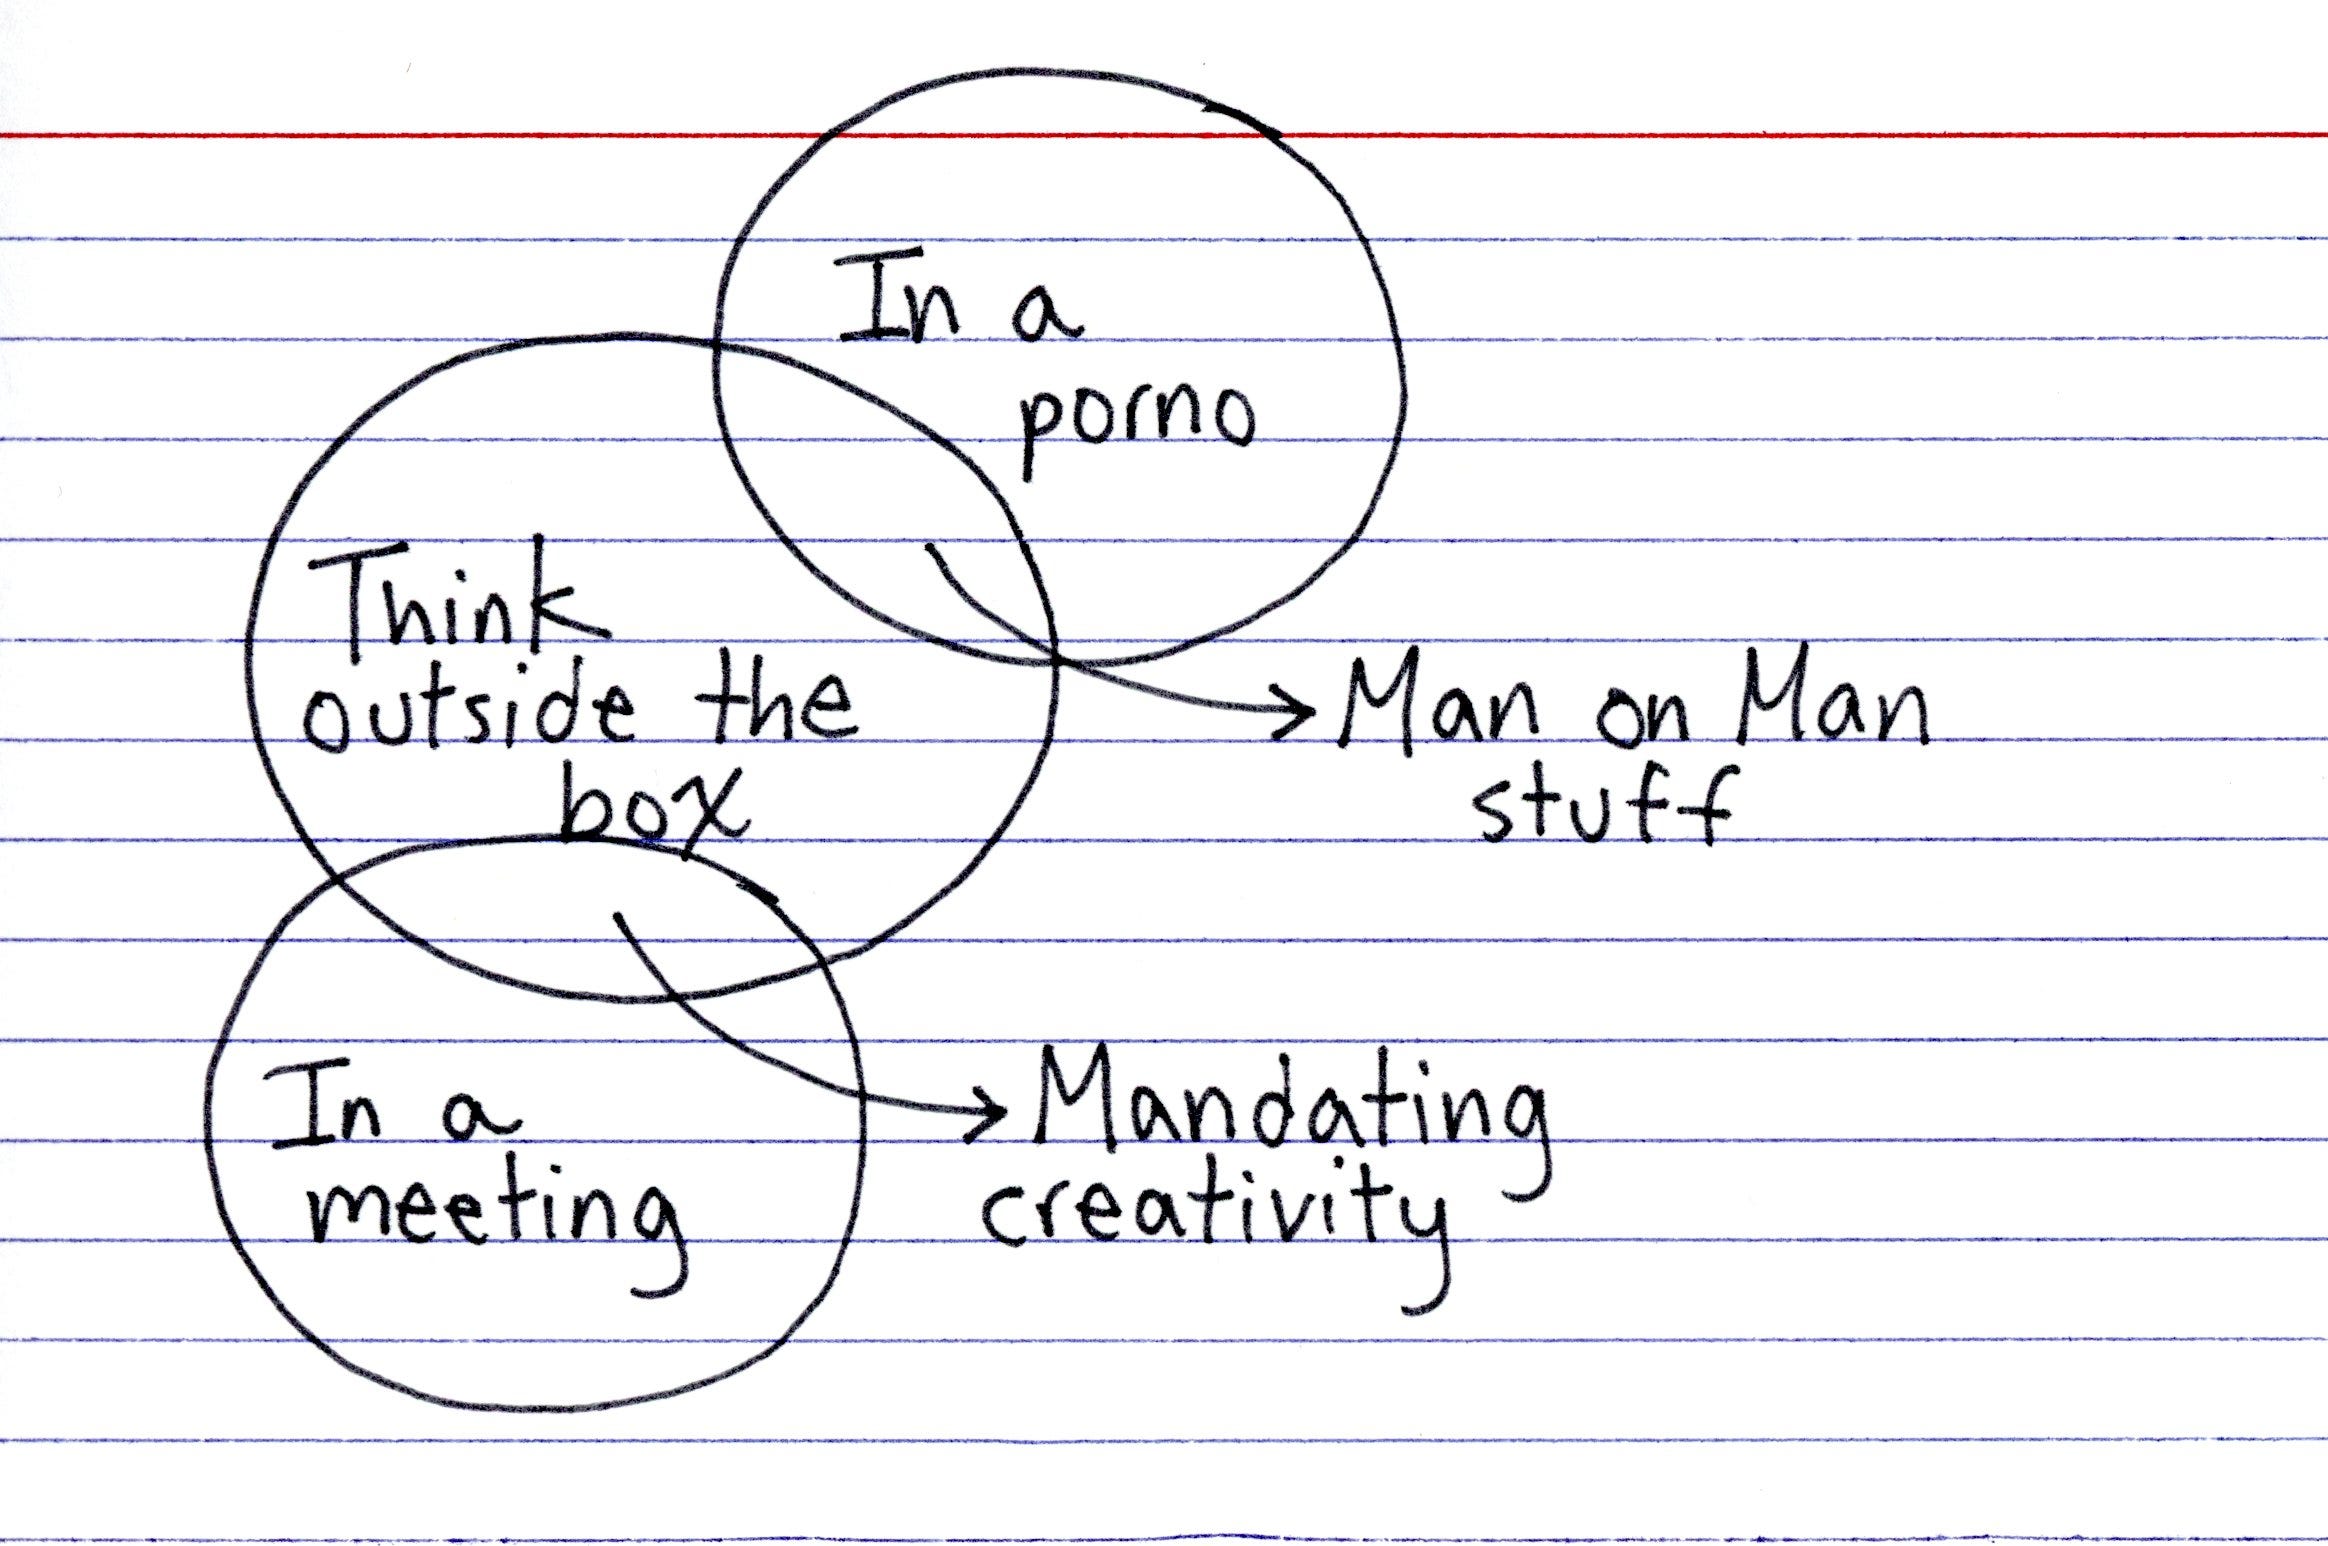 In a
porno
Think
outside the
box
Man on Man
stuff
In a
meeting
Mandating
creativity